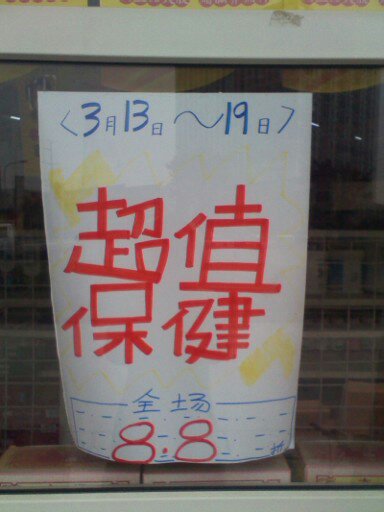 <3月13日～19日>
超值
保健
全场
8.8折